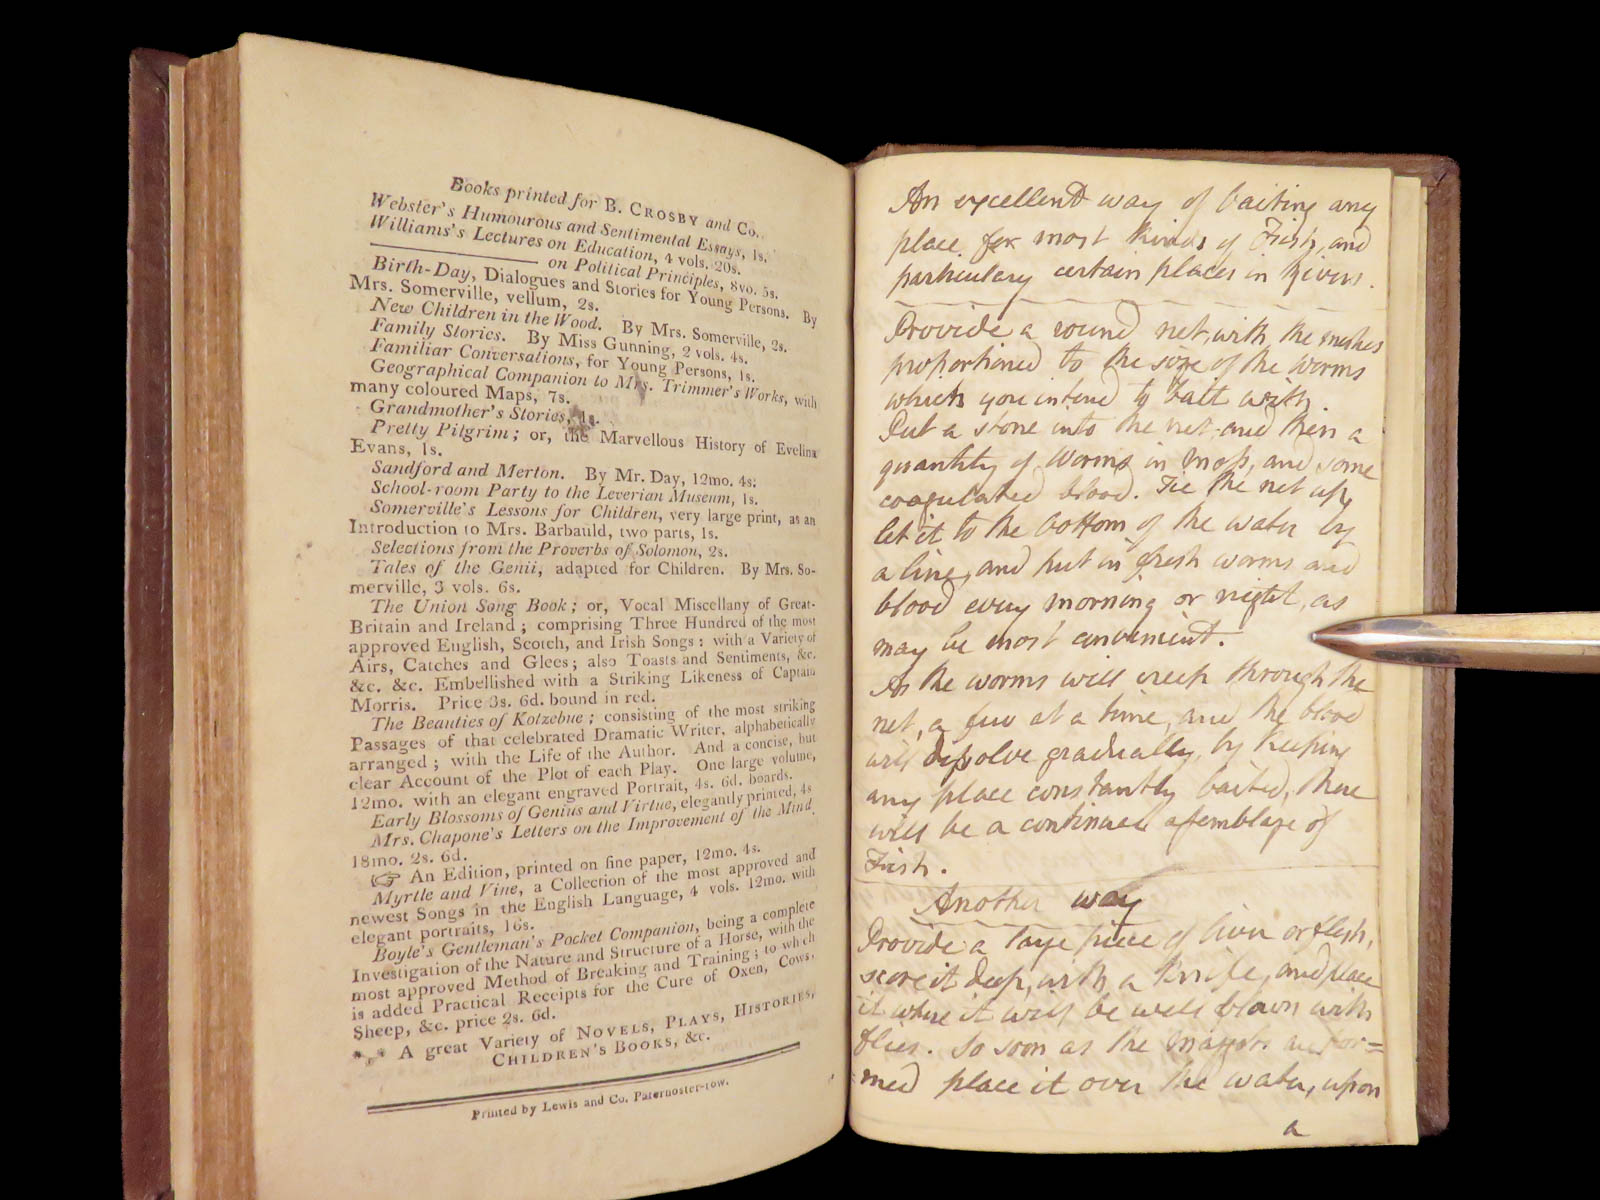 Books printed for B. CROSBY and Co.
Webster's Humourous and Sentimental Essays, 1s.
Williams's Lectures on Education, 4 vols. 20s.
——— on Political Principles, 8vo. 5s.
Birth-Day, Dialogues and Stories for Young Persons. By
Mrs. Somerville, vellum, 2s.
New Children in the Wood. By Mrs. Somerville, 2s.
Family Stories. By Miss Gunning, 2 vols. 4s.
Familiar Conversations, for Young Persons, 1s.
Geographical Companion to Mrs. Trimmer's Works, with
many coloured Maps, 7s.
Grandmother's Stories, 1s.
Pretty Pilgrim; or, the Marvellous History of Evelina
Evans, 1s.
Sandford and Merton. By Mr. Day, 12mo. 4s.
School-room Party to the Leverian Museum, 1s.
Somerville's Lessons for Children, very large print, as an
Introduction to Mrs. Barbauld, two parts, 1s.
Selections from the Proverbs of Solomon, 2s.
Tales of the Genii, adapted for Children. By Mrs. So-
merville, 3 vols. 6s.
The Union Song Book; or, Vocal Miscellany of Great-
Britain and Ireland; comprising Three Hundred of the most
approved English, Scotch, and Irish Songs: with a Variety of
Airs, Catches and Glees; also Toasts and Sentiments, &c.
&c. &c. Embellished with a Striking Likeness of Captain
Morris. Price 3s. 6d. bound in red.
The Beauties of Kotzebue; consisting of the most striking
Passages of that celebrated Dramatic Writer, alphabetically
arranged; with the Life of the Author. And a concise, but
clear Account of the Plot of each Play. One large volume,
12mo. with an elegant engraved Portrait, 4s. 6d. boards.
Early Blossoms of Genius and Virtue, elegantly printed, 4s
Mrs. Chapone's Letters on the Improvement of the Mind,
18mo. 2s. 6d.
☞ An Edition, printed on fine paper, 12mo. 4s.
Myrtle and Vine, a Collection of the most approved and
newest Songs in the English Language, 4 vols. 12mo. with
elegant portraits, 16s.
Boyle's Gentleman's Pocket Companion, being a complete
Investigation of the Nature and Structure of a Horse, with the
most approved Method of Breaking and Training; to which
is added Practical Receipts for the Cure of Oxen, Cows,
Sheep, &c. price 2s. 6d.
*** A great Variety of NOVELS, PLAYS, HISTORIES,
CHILDREN'S BOOKS, &c.
Printed by Lewis and Co. Paternoster-row.
An excellent way of baiting any
place for most kinds of Fish, and
particulary certain places in Rivers.
Provide a round net, with the meshes
proportioned to the size of the worms
which you intend to bait with.
Put a stone into the net, and then a
quantity of worms in moss, and some
coagulated blood. Tie the net up,
let it to the bottom of the water by
a line, and put in fresh worms and
blood every morning or night, as
may be most convenient.
As the worms will creep through the
net, a few at a time, and the blood
will dissolve gradually, by keeping
any place constantly baited, there
will be a continual assemblage of
Fish.
Another way
Provide a large piece of liver or flesh,
score it deep, with a knife, and place
it where it will be well blown with
flies. So soon as the maggots are for=
med place it over the water, upon
a